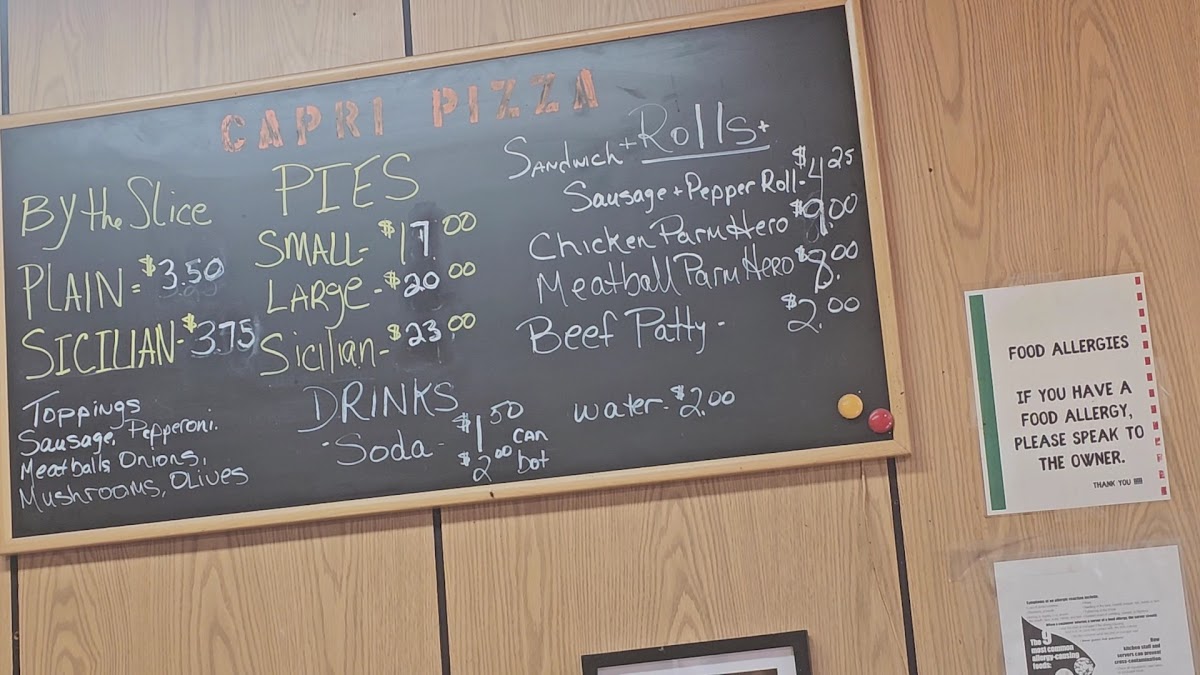 CAPRI PIZZA
By the Slice
PLAIN = $3.50
SICILIAN - $3.75
Toppings
Sausage, Pepperoni.
Meatballs Onions,
Mushrooms, OLives
PIES
SMALL - $17.00
LARGe - $20.00
Sicilian - $23.00
DRINKS
- Soda - $1.50 CAN
$2.00 bot
SANDwich + Rolls +
Sausage + Pepper Roll - $4.25
Chicken Parm Hero $9.00
Meatball Parm Hero $8.00
Beef Patty - $2.00
water - $2.00
FOOD ALLERGIES
IF YOU HAVE A
FOOD ALLERGY,
PLEASE SPEAK TO
THE OWNER.
THANK YOU !!!!
Symptoms of an allergic reaction include:
The 9
most common
allergy-causing
foods:
How
kitchen staff and
servers can prevent
cross-contamination